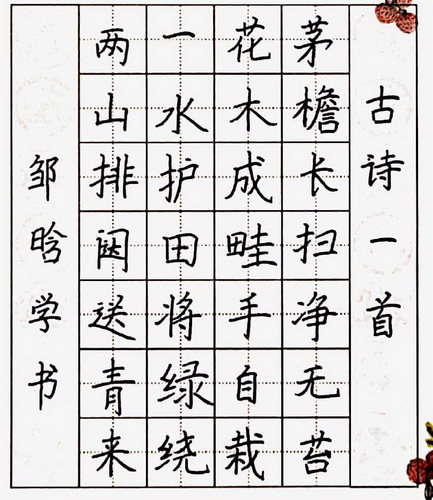 古诗一首
茅檐长扫净无苔
花木成畦手自栽
一水护田将绿绕
两山排闼送青来
邹晗学书